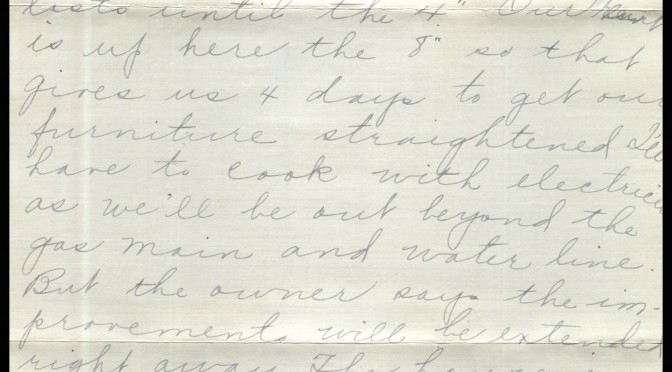 lasts until the 4." Our rent
is up here the 8" so that
gives us 4 days to get our
furniture straightened We
have to cook with electrici
as we'll be out beyond the
gas main and water line.
But the owner says the im-
provements will be extended
right away. The house i